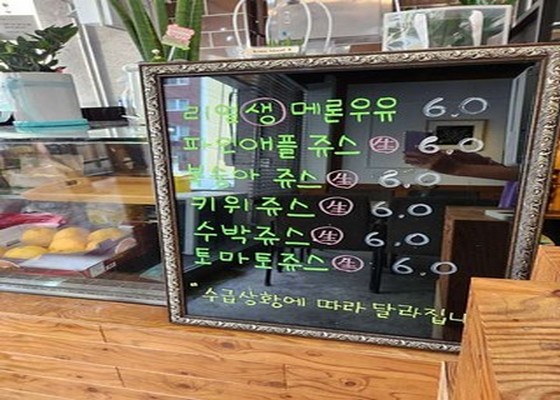 리얼 생 메론우유 6.0
파인애플 쥬스 生 6.0
복숭아 쥬스 生 6.0
키위쥬스 生 6.0
수박쥬스 生 6.0
토마토쥬스 生 6.0
* 수급상황에 따라 달라집니